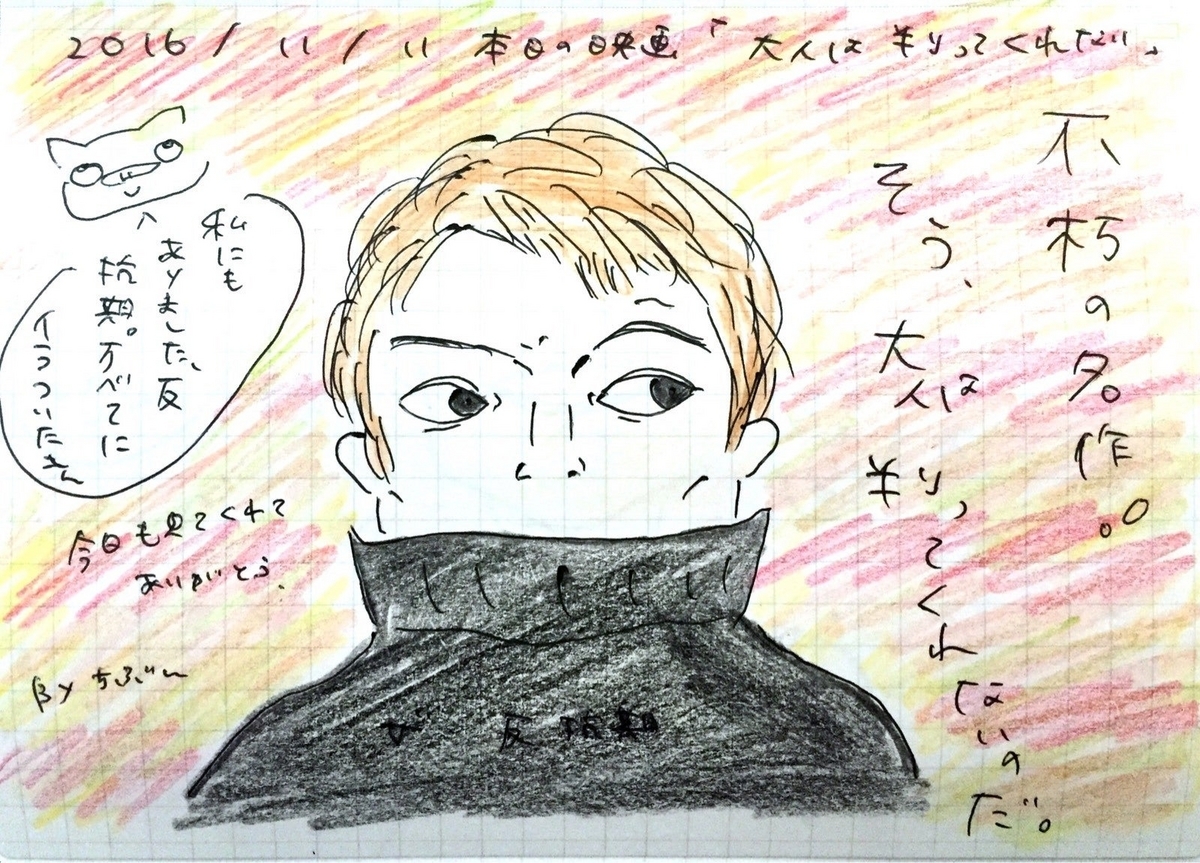 2016/11/11 本日の映画「大人は判ってくれない」
不朽の名作。
そう、大人は判ってくれないのだ。
私にも
ありました、反
抗期。すべてに
イラついたさ
今日も見てくれて
ありがとう.
By
反抗期